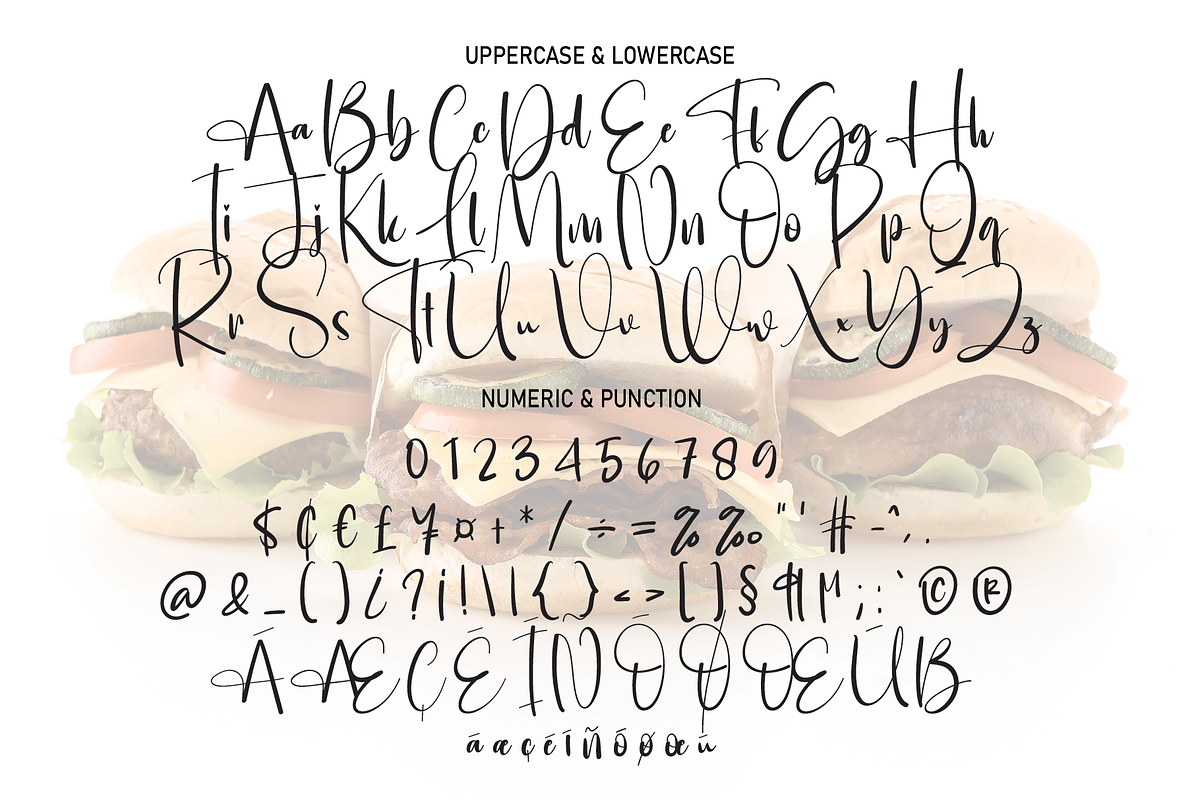 UPPERCASE & LOWERCASE
Aa Bb Cc Dd Ee Ff Gg Hh
Ii Jj Kk Ll Mm Nn Oo Pp Qq
Rr Ss Tt Uu Vv Ww Xx Yy Zz
NUMERIC & PUNCTION
0 1 2 3 4 5 6 7 8 9
$ ¢ € £ ¥ ¤ + * / ÷ = % ‰ " ' # - ^ , .
@ & _ ( ) ¿ ? ¡ ! \ | { } < > [ ] § ¶ µ ; : ` © ®
Á Æ Ç É Í Ñ Ó Ø Œ Ú ß
á æ ç é í ñ ó ø œ ú